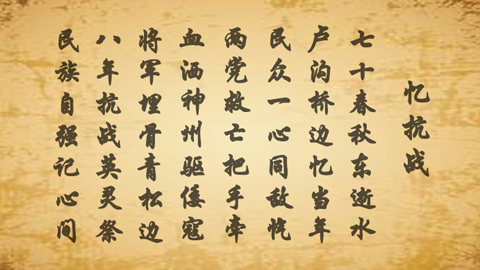 忆抗战
七十春秋东逝水
卢沟桥边忆当年
民众一心同敌忾
两党救亡把手牵
血洒神州驱倭寇
将军埋骨青松边
八年抗战英灵祭
民族自强记心间